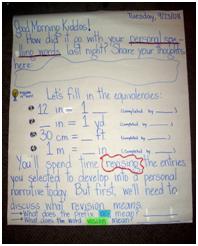 Tuesday, 9/23/08
Good Morning Kiddos!
How did it go with your personal spe-
lling words last night? Share your thoughts
here:
Let's fill in the equivalencies:
12 in = 1 (Completed by
in = 1 yd (Completed by
30 cm = ft (Completed by
1 m = in (Completed by
You'll spend time revising the entries
you selected to develop into a personal
narrative today. But first, we'll need to
discuss what revision means.
What does the prefix mean?
What does the word vision mean?